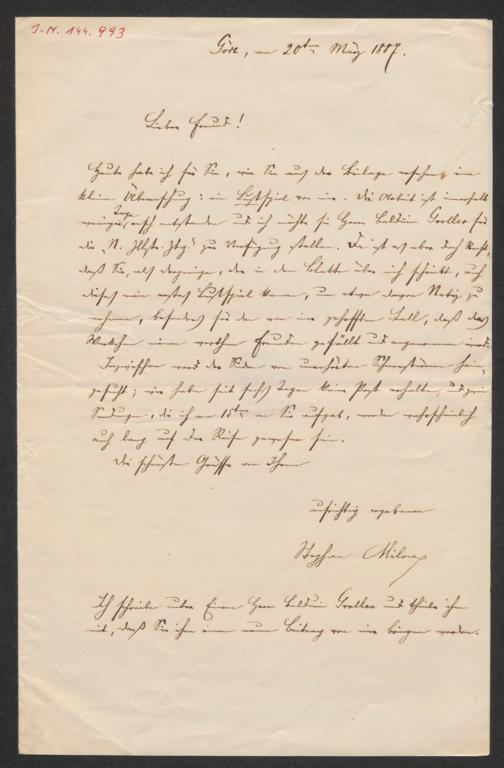 I.N. 144.993
Görz, am 20ten März 1887.
Lieber Freund!
Heute habe ich für Sie, wie Sie aus der Beilage ersehen, eine
kleine Überraschung: ein Lustspiel von mir. Die Arbeit ist innerhalb
weniger Tage rasch entstanden und ich möchte sie Herrn Balduin Groller für
die „N. Illstr. Ztg." zur Verfügung stellen. Da ist es aber doch
daß Sie, als derjenige, der in dem Blatte über mich schreibt, auch
dieses mein erstes Lustspiel kennen, um etwa davon Notiz zu
nehmen, besonders für den von mir gehofften Fall, daß das
Werkchen meinem werthen Freunde gefällt und angenommen wird.
Inzwischen ward der Süden von unerhörten Schneestürmen heim-
gesucht; wir haben seit sechs Tagen keine Post erhalten, und
Sendungen, die ich am 15ten an Sie aufgab, werden wahrscheinlich
auch lang auf der Reise gewesen sein.
Die schönsten Grüße von Ihrem
aufrichtig ergebenen
Stephan Milow
Ich schreibe unter Einem Herrn Balduin Groller und theile ihm
mit, daß Sie ihm einen neuen Beitrag von mir bringen werden.